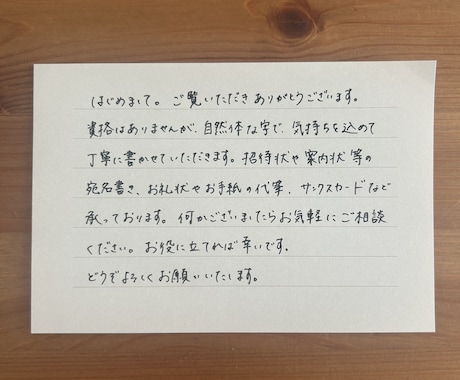 はじめまして。ご覧いただきありがとうございます。
資格はありませんが、自然体な字で、気持ちを込めて
丁寧に書かせていただきます。招待状や案内状等の
宛名書き、お礼状やお手紙の代筆、サンクスカードなど
承っております。何かございましたらお気軽にご相談
ください。お役に立てれば幸いです。
どうぞよろしくお願いいたします。